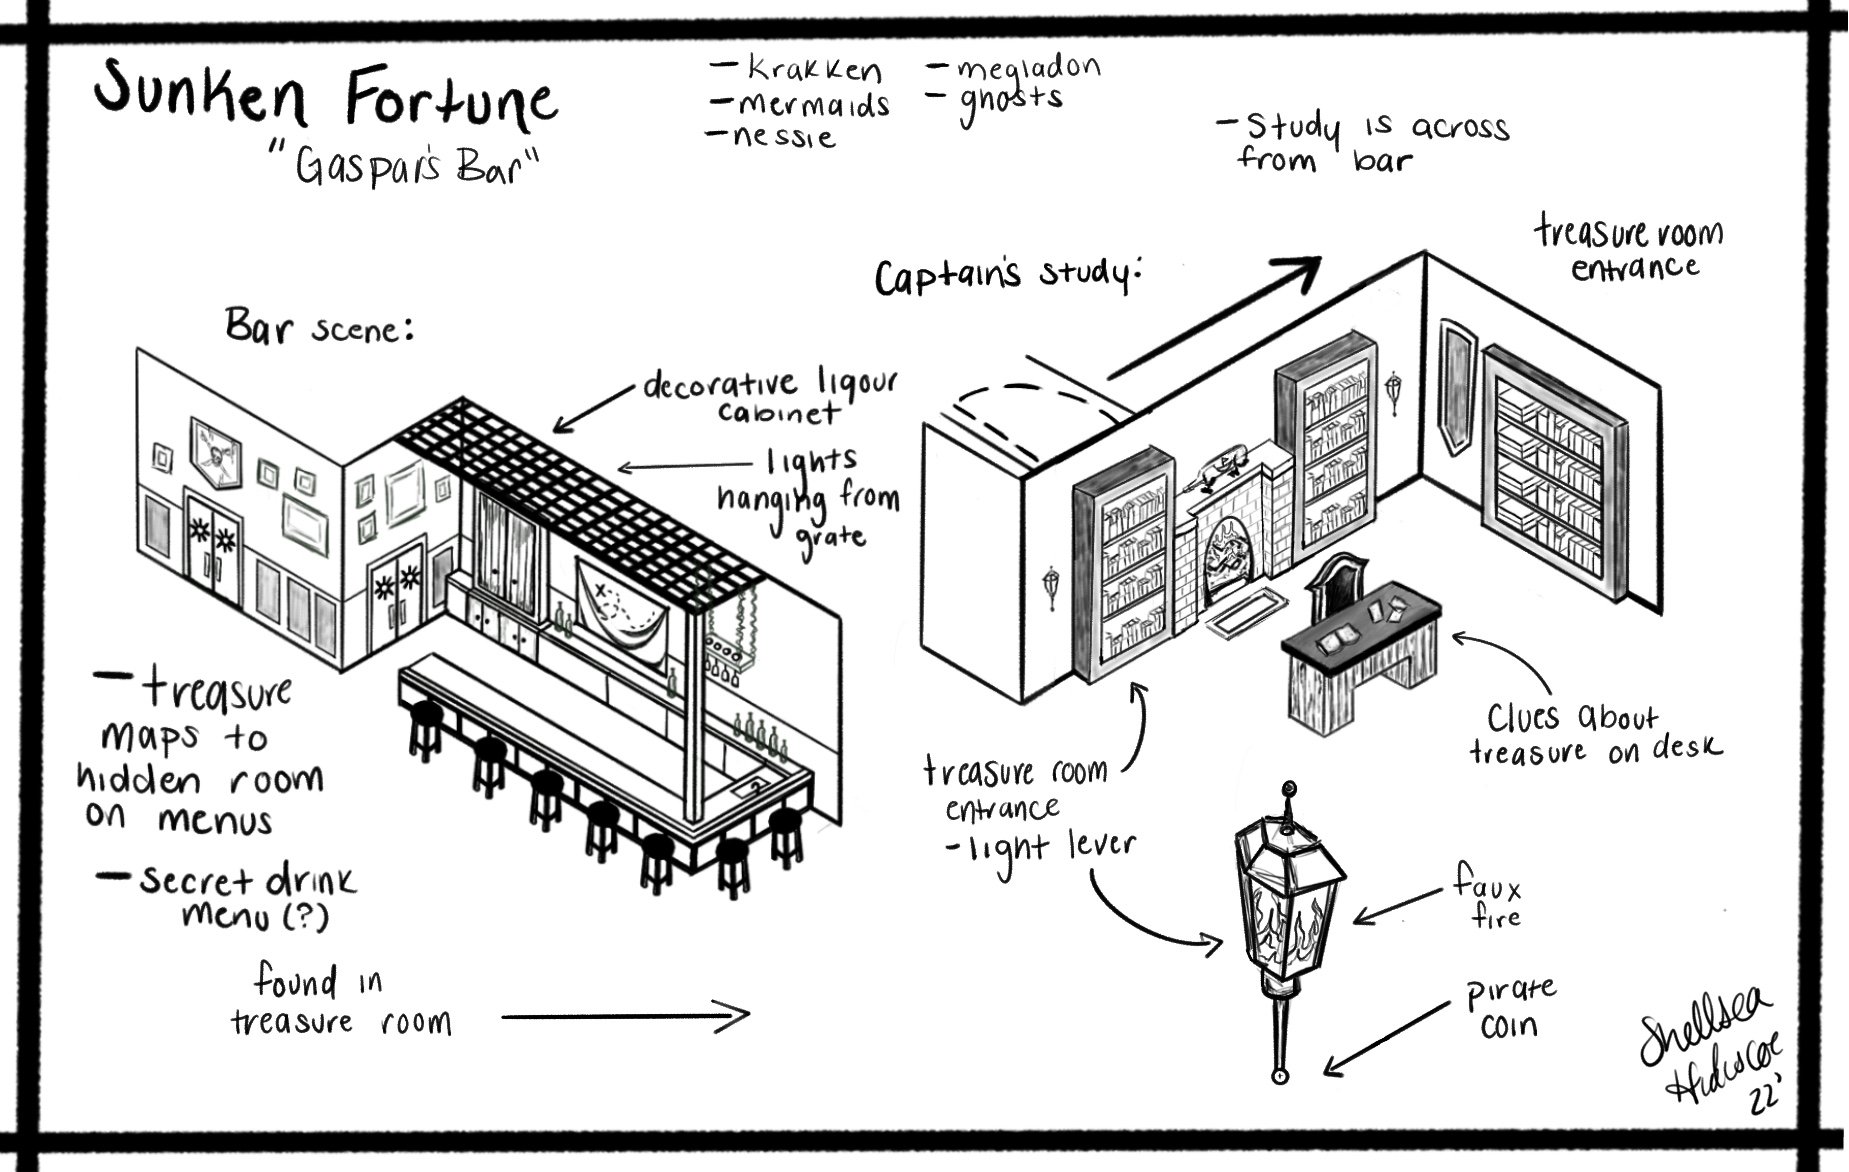 Sunken Fortune
"Gaspar's Bar"
- Krakken
- mermaids
- nessie
- megladon
- ghosts
- Study is across
from bar
treasure room
entrance
Captain's study:
Bar scene:
decorative liqour
cabinet
lights
hanging from
grate
- treasure
maps to
hidden room
on menus
- secret drink
menu (?)
found in
treasure room
treasure room
entrance
- light lever
Clues about
treasure on desk
faux
fire
pirate
coin
Shellsea
22'